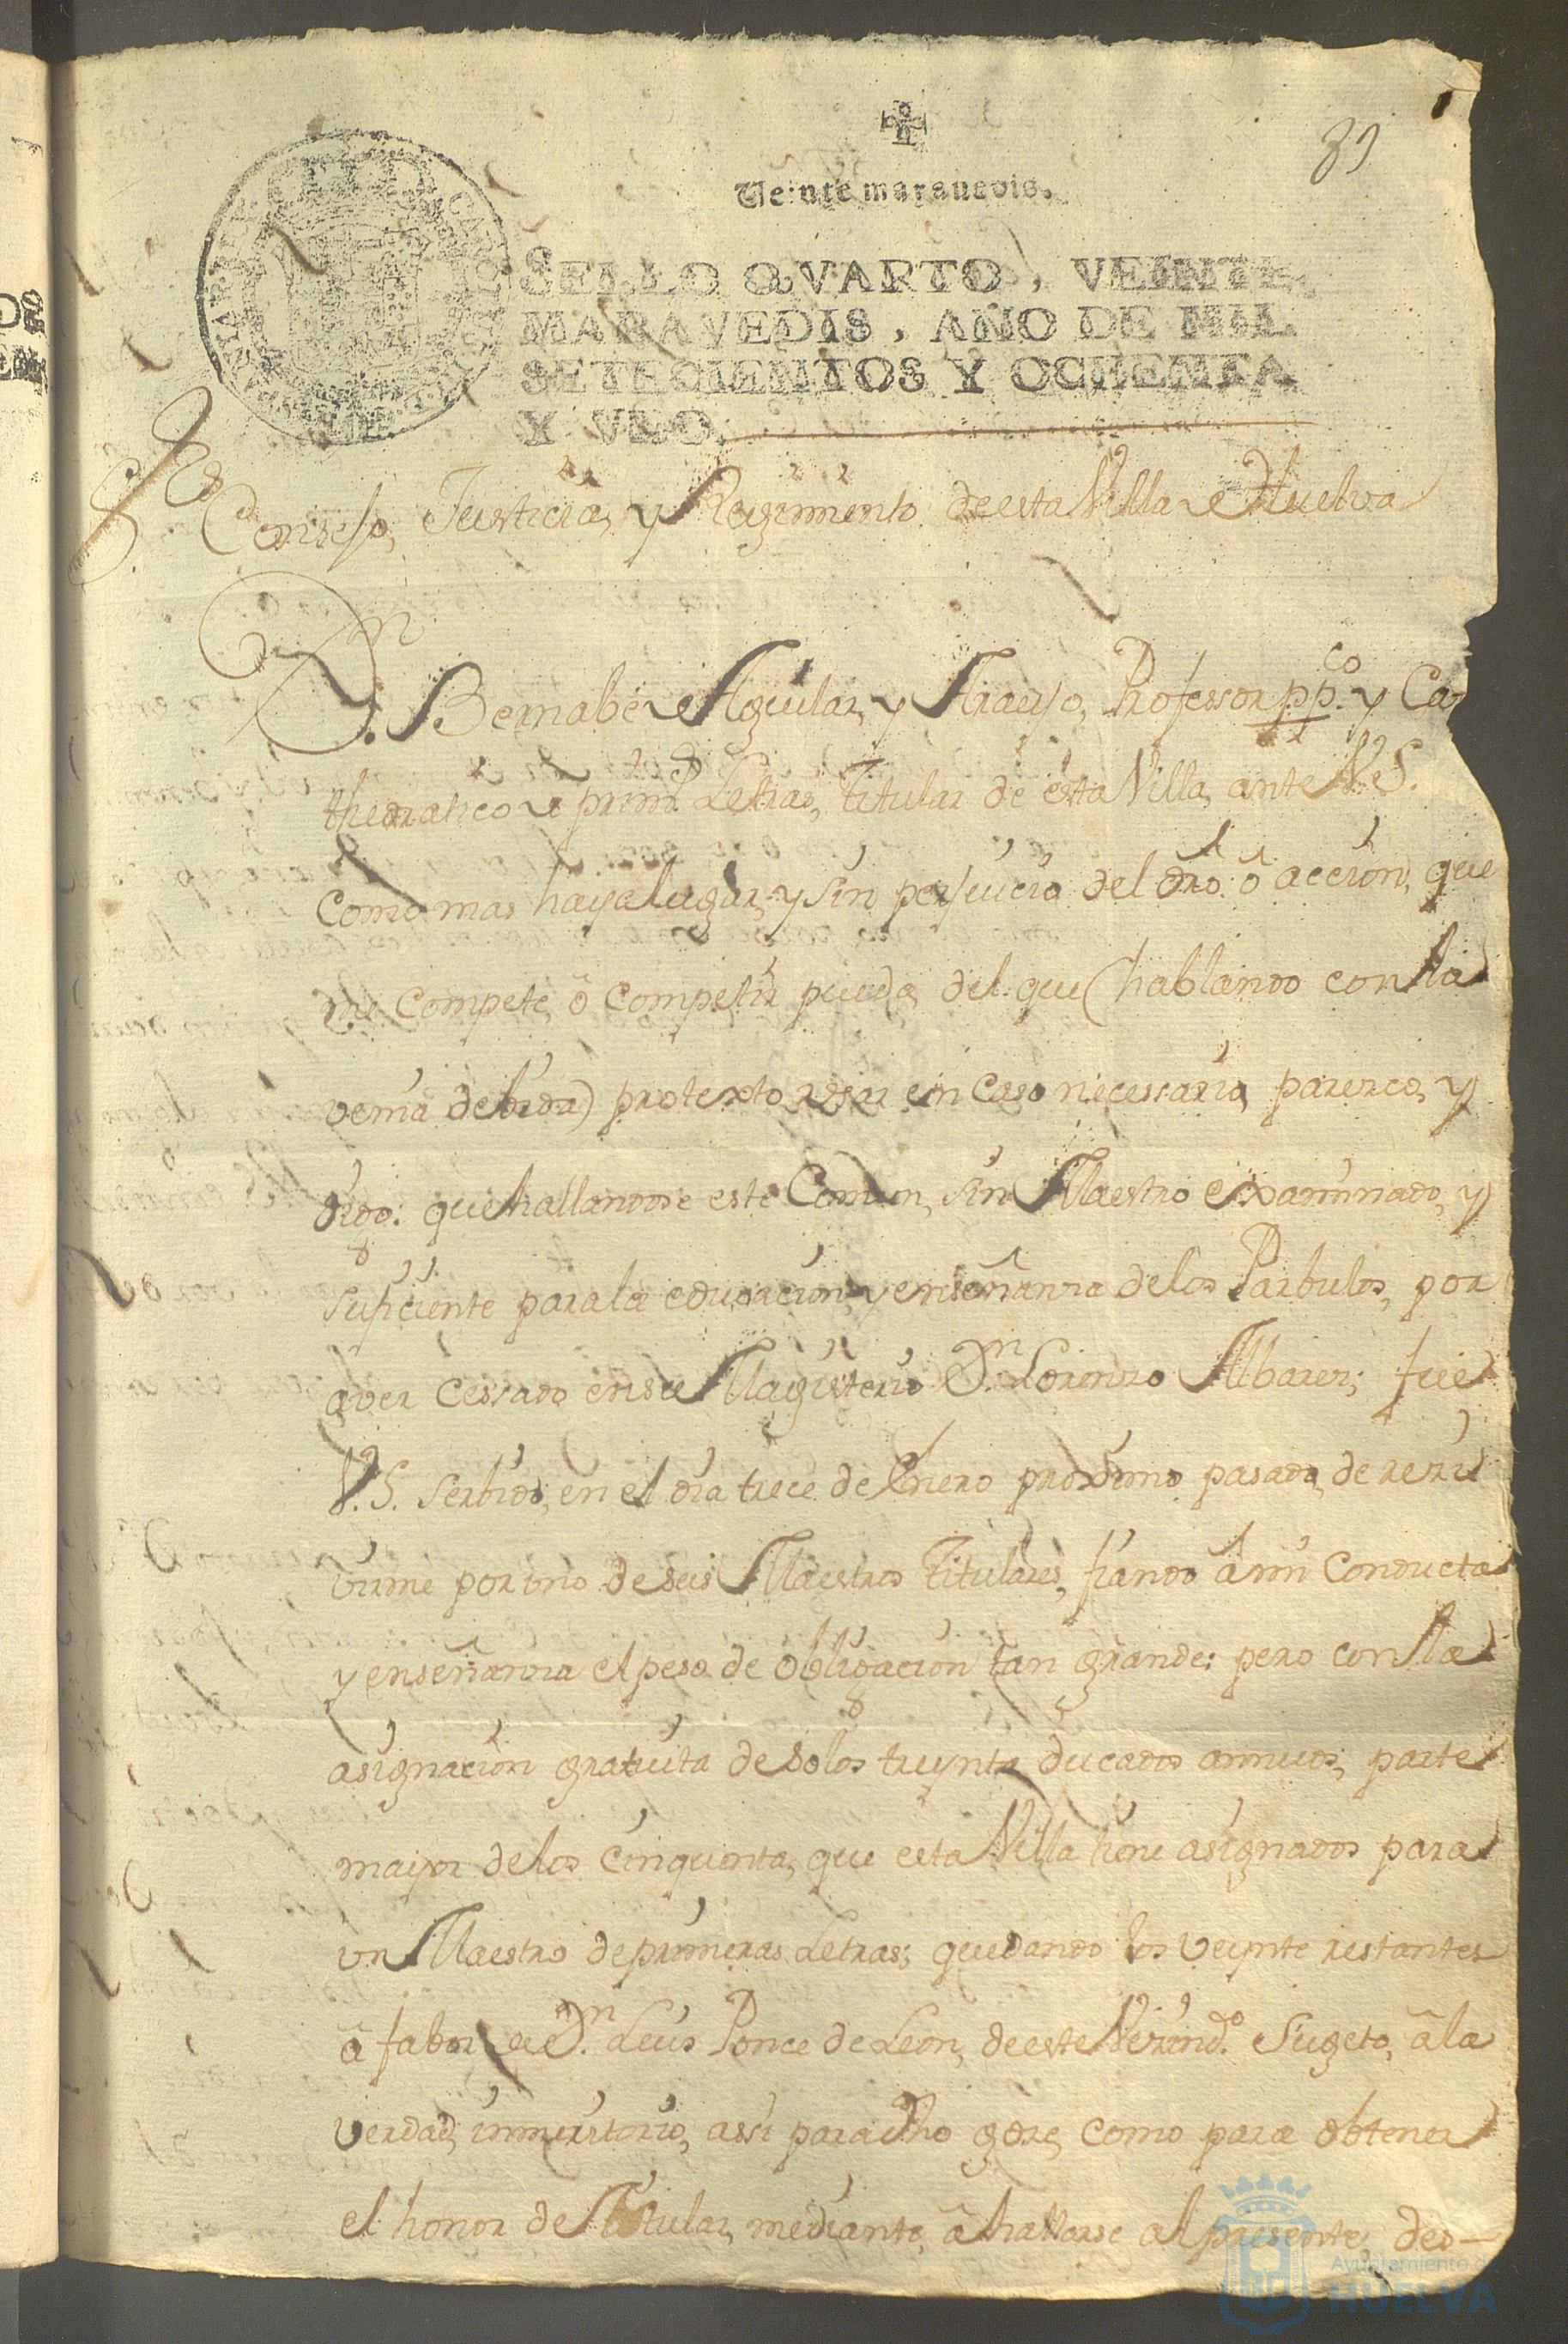 39
Veinte marauedis.
SELLO QVARTO, VEINTE
MARAVEDIS, AÑO DE MIL
SETECIENTOS Y OCHENTA
Y VNO.
Consejo, Justicia, y Regimiento de esta Villa de Huelva
Dn. Bernabe Aguilar, y Araujo, Professor pp.co y Ca-
thedratico de prims. Letras, Titular de esta Villa, ante V.S.
como mas haya lugar, y sin perjuicio del dro. õ accion, que
me compete, õ competir pueda, del que (hablando con la
venia debida) protexto usar en caso necessario, parezco, y
digo: que hallandose este Comun, sin Maestro examinado, y
suficiente para la educacion, y enseñanza de los Parbulos, por
aver cessado en su Magisterio Dn. Lorenzo Albarez; fue
V.S. serbido, en el dia trece de Enero proximo pasado, de reci-
virme por uno de sus Maestros Titulares, fiando â mi conducta
y enseñanza el peso de obligacion tan grande: pero con la
asignacion gratuita de solos treynta ducados annuos, parte
mayor de los cinquenta, que esta Villa tiene asignados para
un Maestro de primeras Letras; quedando los veynte restantes
ã fabor de Dn. Luis Ponce de Leon, de este Vezind.o Sugeto, ã la
verdad, inmeritorio, assi para dho goze, como para obtener
el honor de Titular, mediante, ã hallarse al presente, des-
Ayuntamiento de
HUELVA